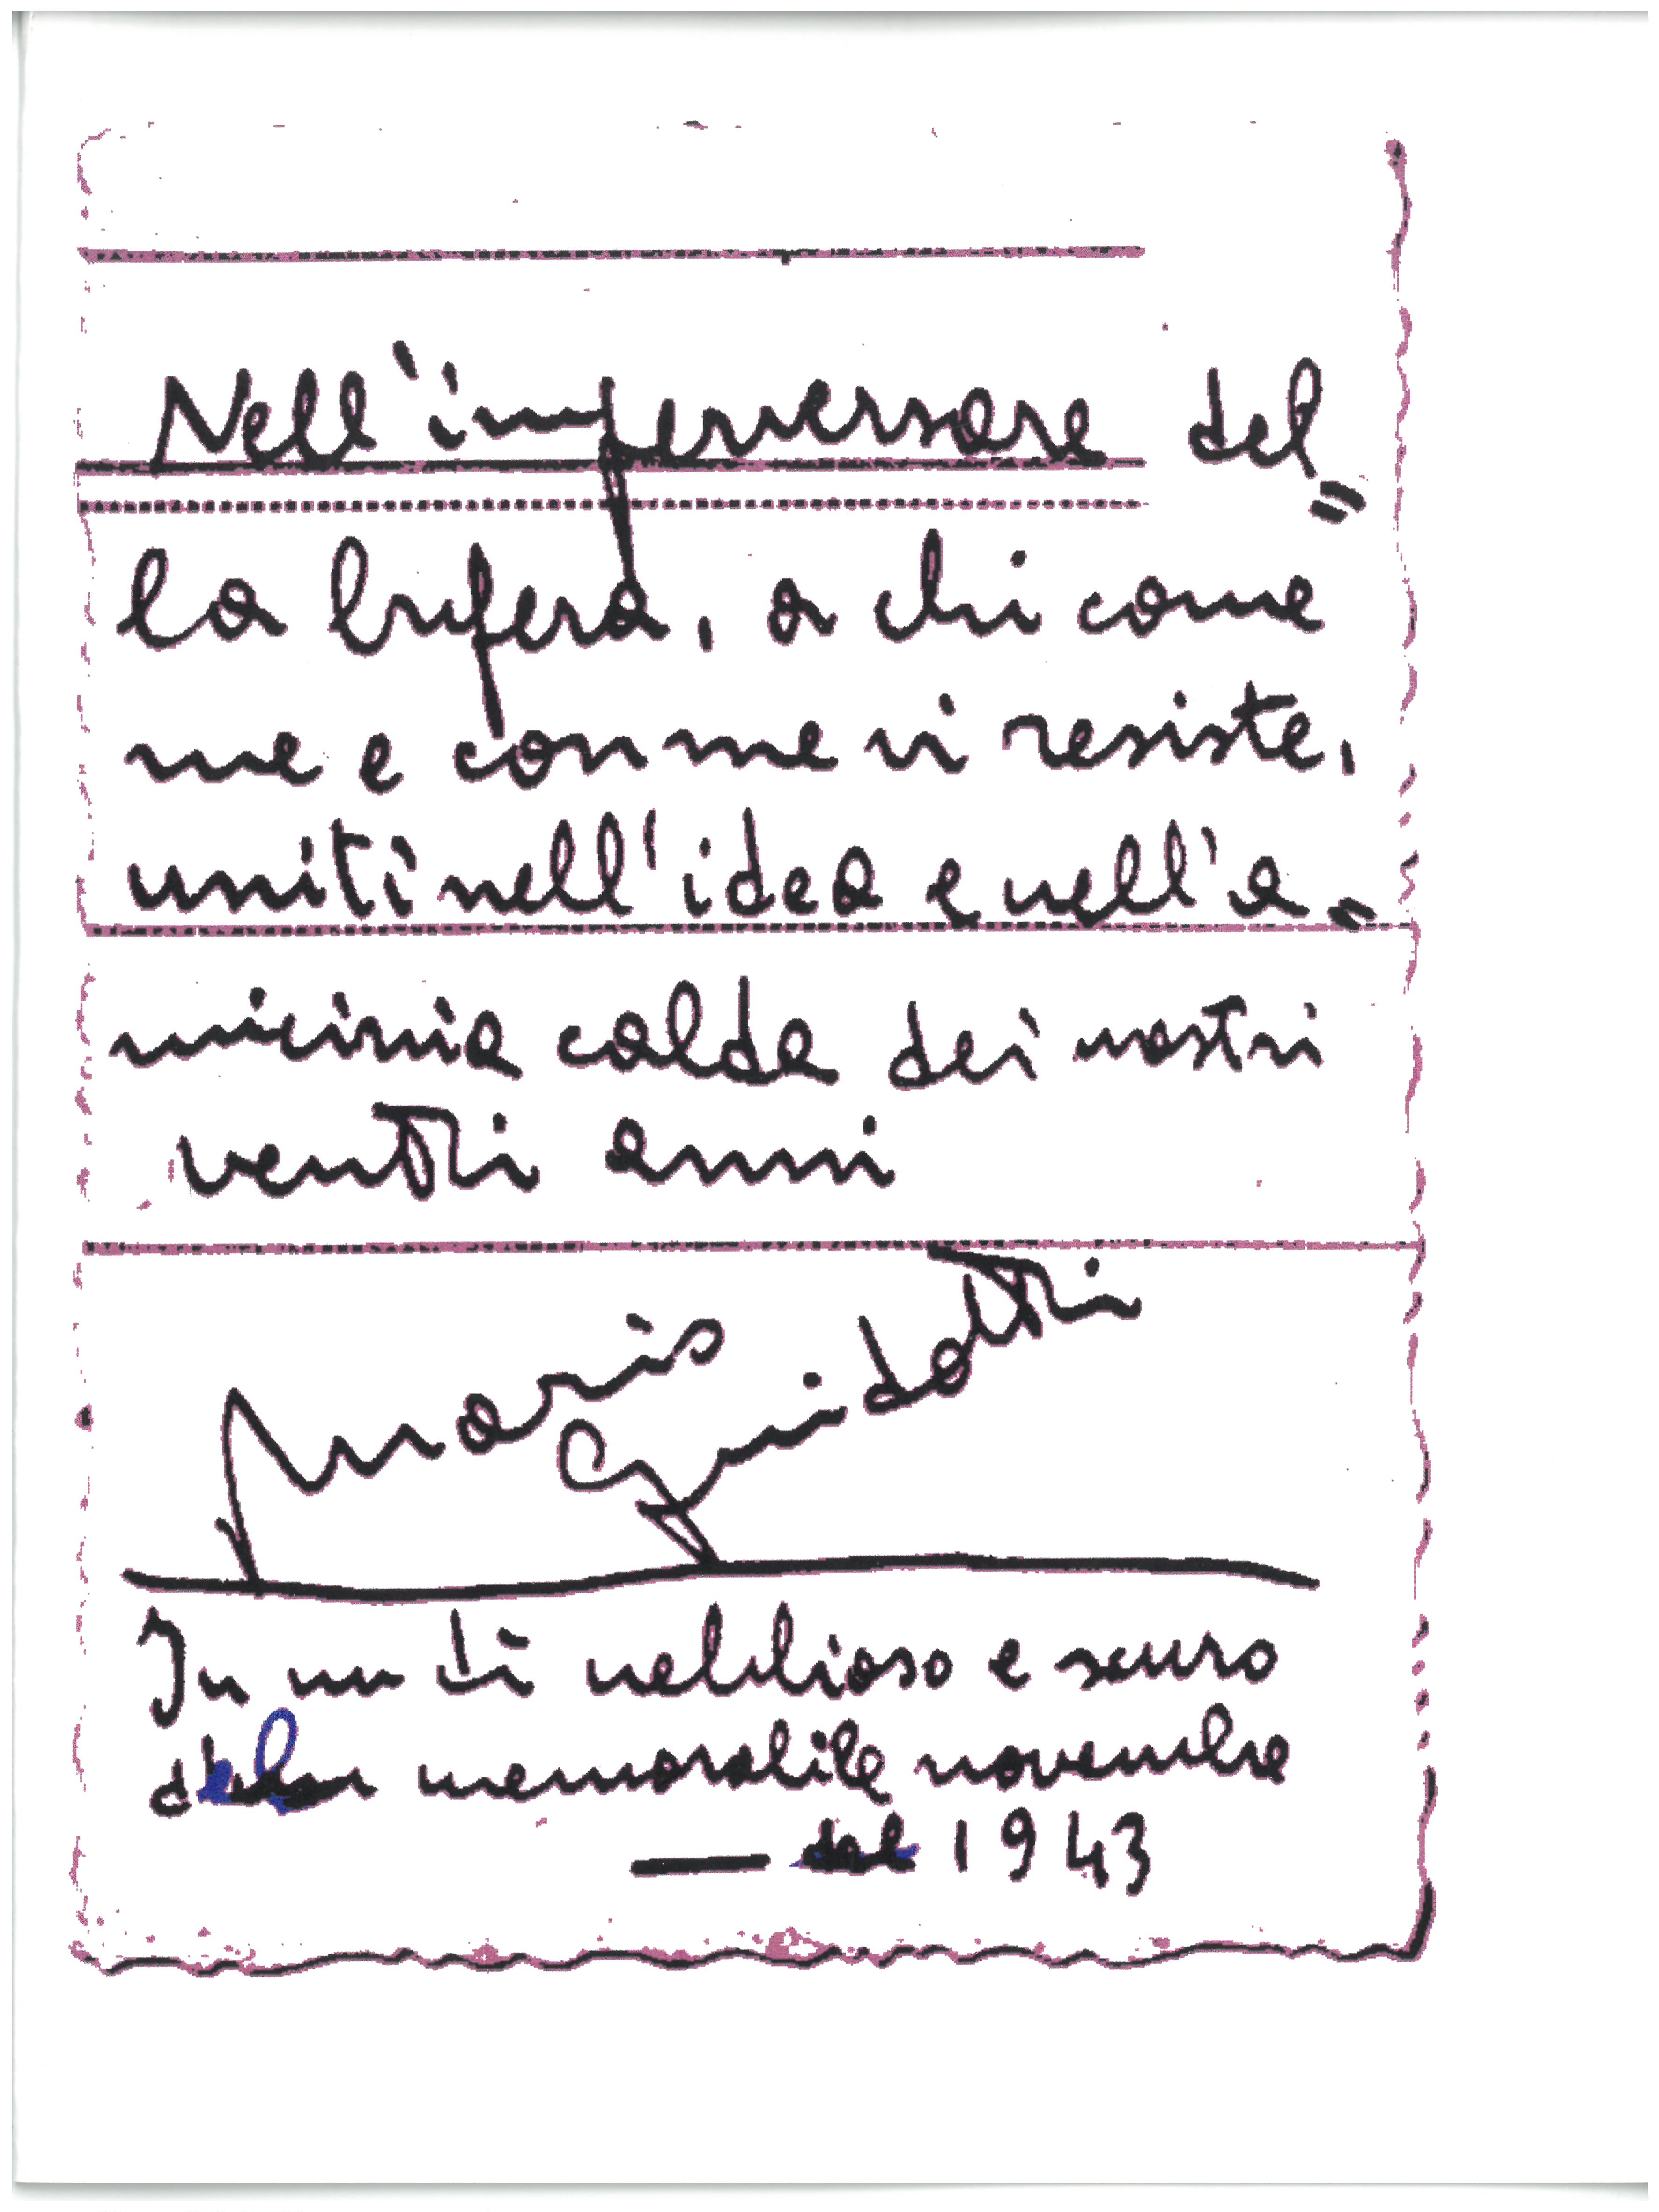 Nell'imperversare del=
la bufera, a chi come
me e con me vi resiste,
uniti nell'idea e nell'a=
micizia calda dei nostri
ventri anni
Mario
Guidotti
In un dì nebbioso e scuro
del memorabile novembre
— del 1943